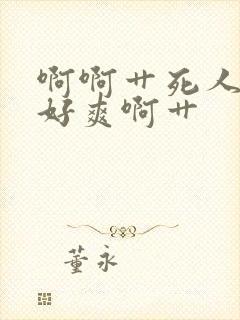 啊啊艹死人
好爽啊艹
董永